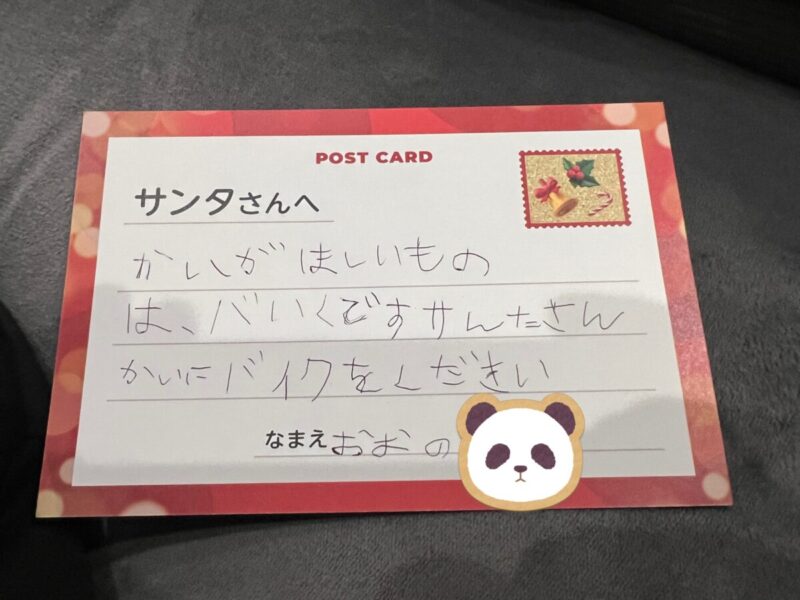 POST CARD
サンタさんへ
かいがほしいもの
は、バいくですサんたさん
かいにバイクをくださいい
なまえ おおの